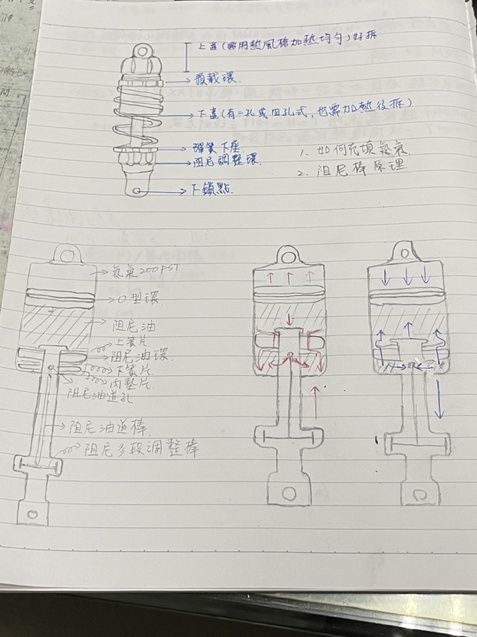 上蓋(需用熱風槍加熱均勻)好拆
預載環
下蓋(有一孔或四孔式,也需加熱後拆)
彈簧下座
阻尼調整環
下鎖點
1. 如何充填氮氣
2. 阻尼棒原理
氮氣200psi
O型環
阻尼油
上墊片
阻尼油環
下墊片
內墊片
阻尼油道孔
阻尼油道棒
阻尼多段調整棒